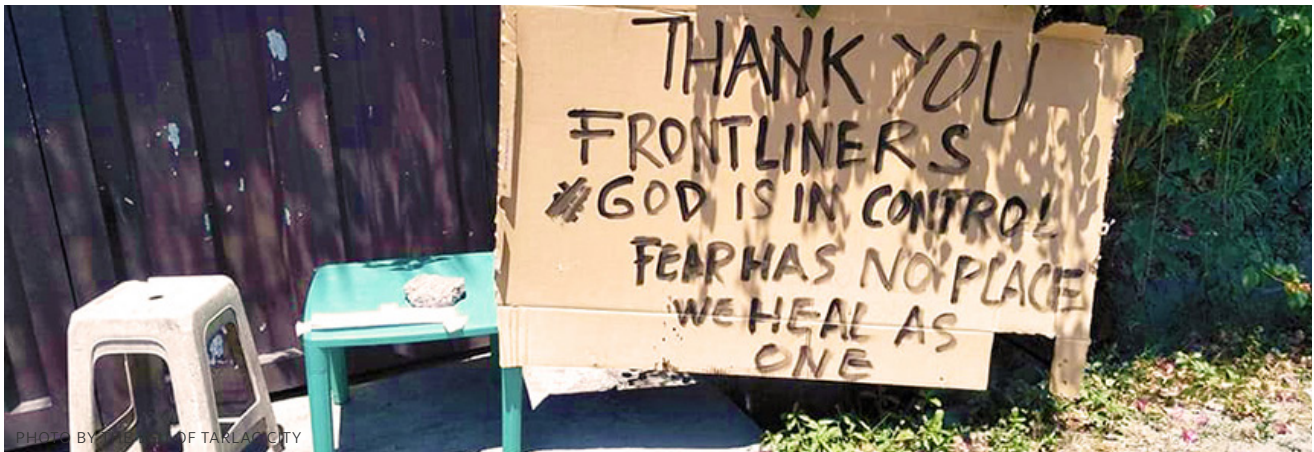 THANK YOU
FRONTLINERS
#GOD IS IN CONTROL
FEAR HAS NO PLACE
WE HEAL AS
ONE
PHOTO BY THE OF TARLAC CITY